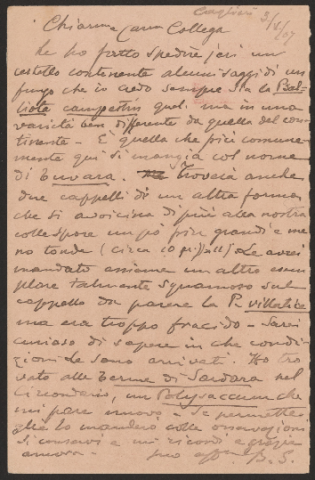 Cagliari 3/X/07
Chiarmo e Caro Collega
Le ho fatto spedire jeri un
cestello contenente alcuni saggi di un
fungo che io credo sempre sia la Psal-
liota campestris quel in una
varietà ben differente da quella del con-
tinente - È quella che più comune-
mente qui si mangia col nome
di Tuvara. Troverà anche
due cappelli di un'altra forma
che si avvicina di più alla nostra
colle spore un pò più grandi e me
no tonde (circa 10 Le avrei
mandato assieme un altro esem
plare talmente squamoso sul
cappello da parere la P. villatica
ma era troppo fracido - Sarei
curioso di sapere in che condi-
zioni Le sono arrivati. Ho tro
vato alle Terme di Sardara nel
circondario, un Polysaccum che
mi pare nuovo - Se permette
glie lo manderò colle osservazioni
Si conservi e mi ricordi e grazie
ancora - suo aff. B. S.